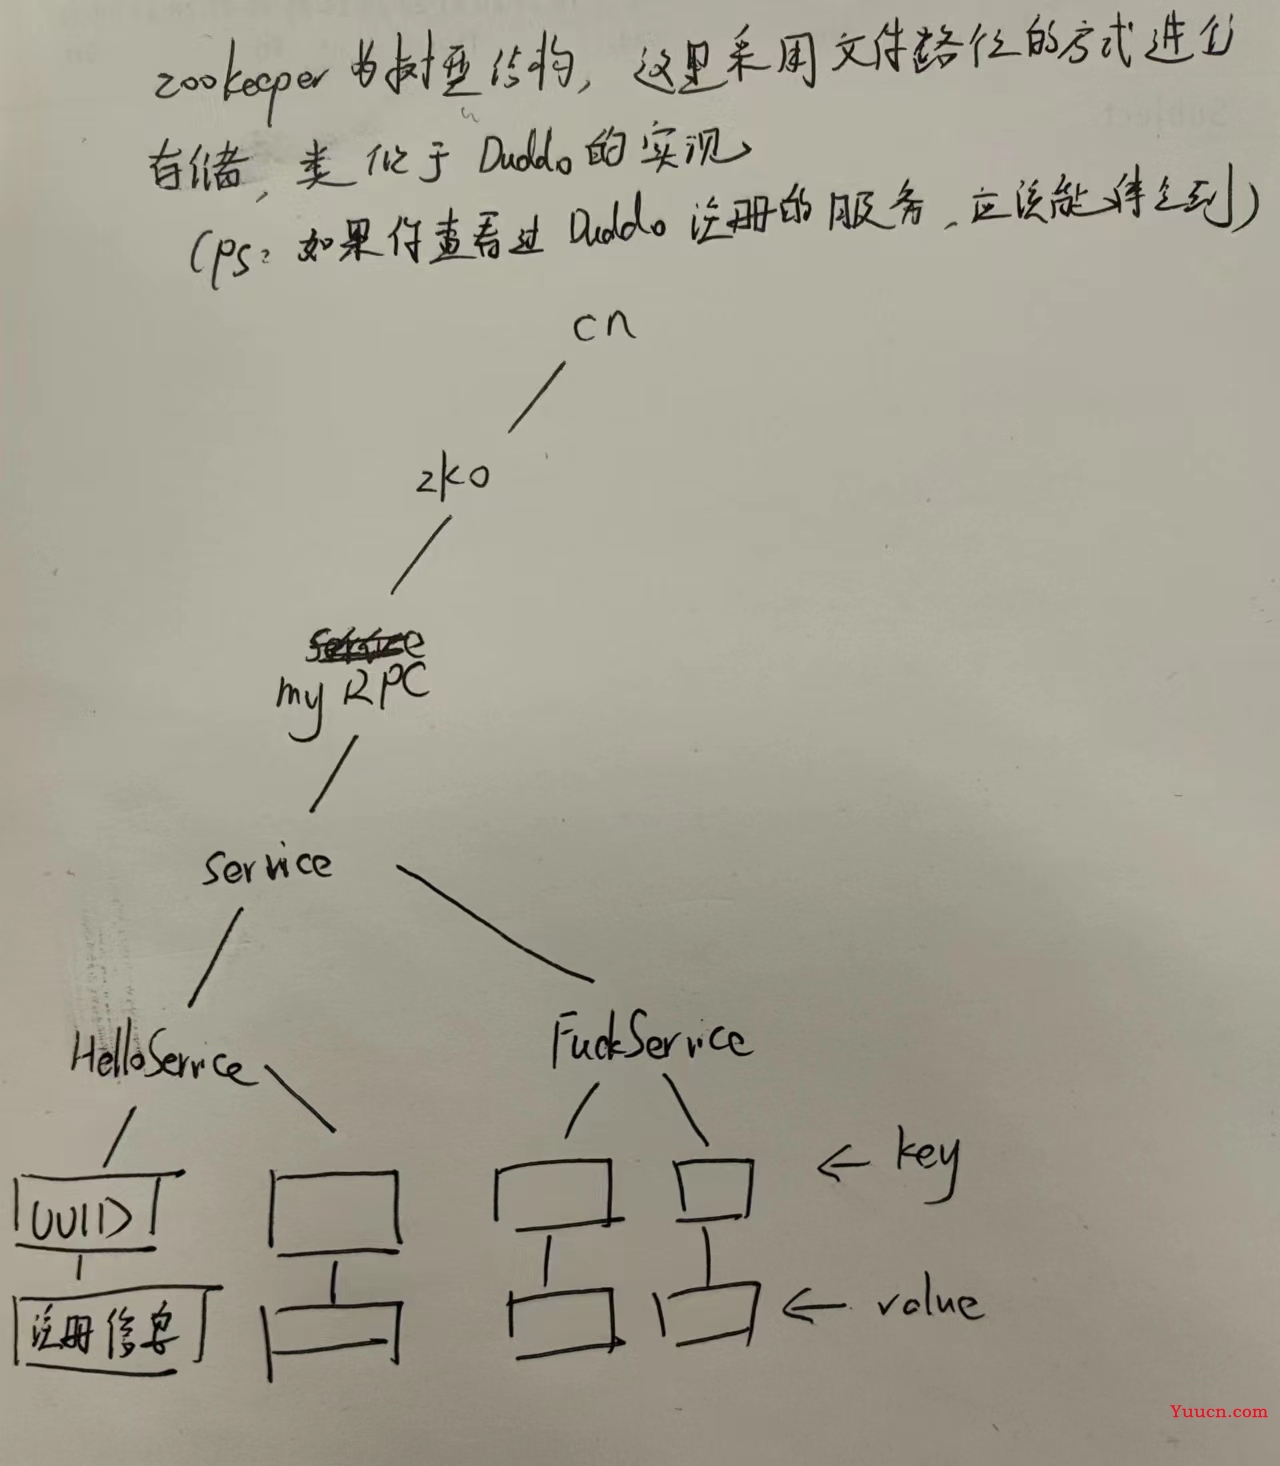 zookeeper 为树型结构, 这里采用文件路径的方式进行
存储, 类似于 Duddo 的实现
(ps: 如果你查看过 Duddo 注册的服务, 应该能体会到)
cn
zko
service
my RPC
service
HelloService
FuckService
key
UUID
注册信息
value
Yuucn.com